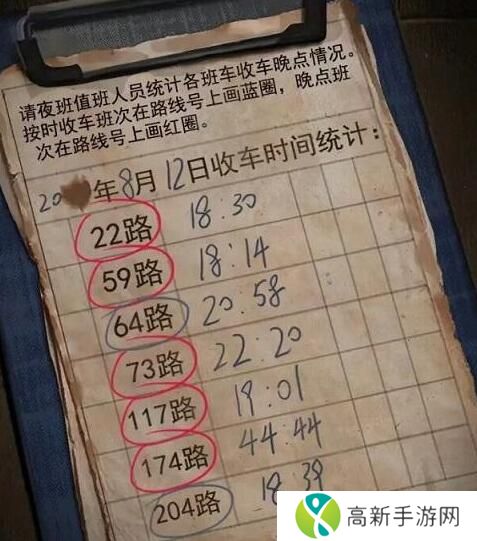 请夜班值班人员统计各班车收车晚点情况。
按时收车班次在路线号上画蓝圈，晚点班
次在路线号上画红圈。
20 年8月12日收车时间统计：
22路 18:30
59路 18:14
64路 20:58
73路 22:20
117路 19:01
174路 44:44
204路 18:39
高新手游网